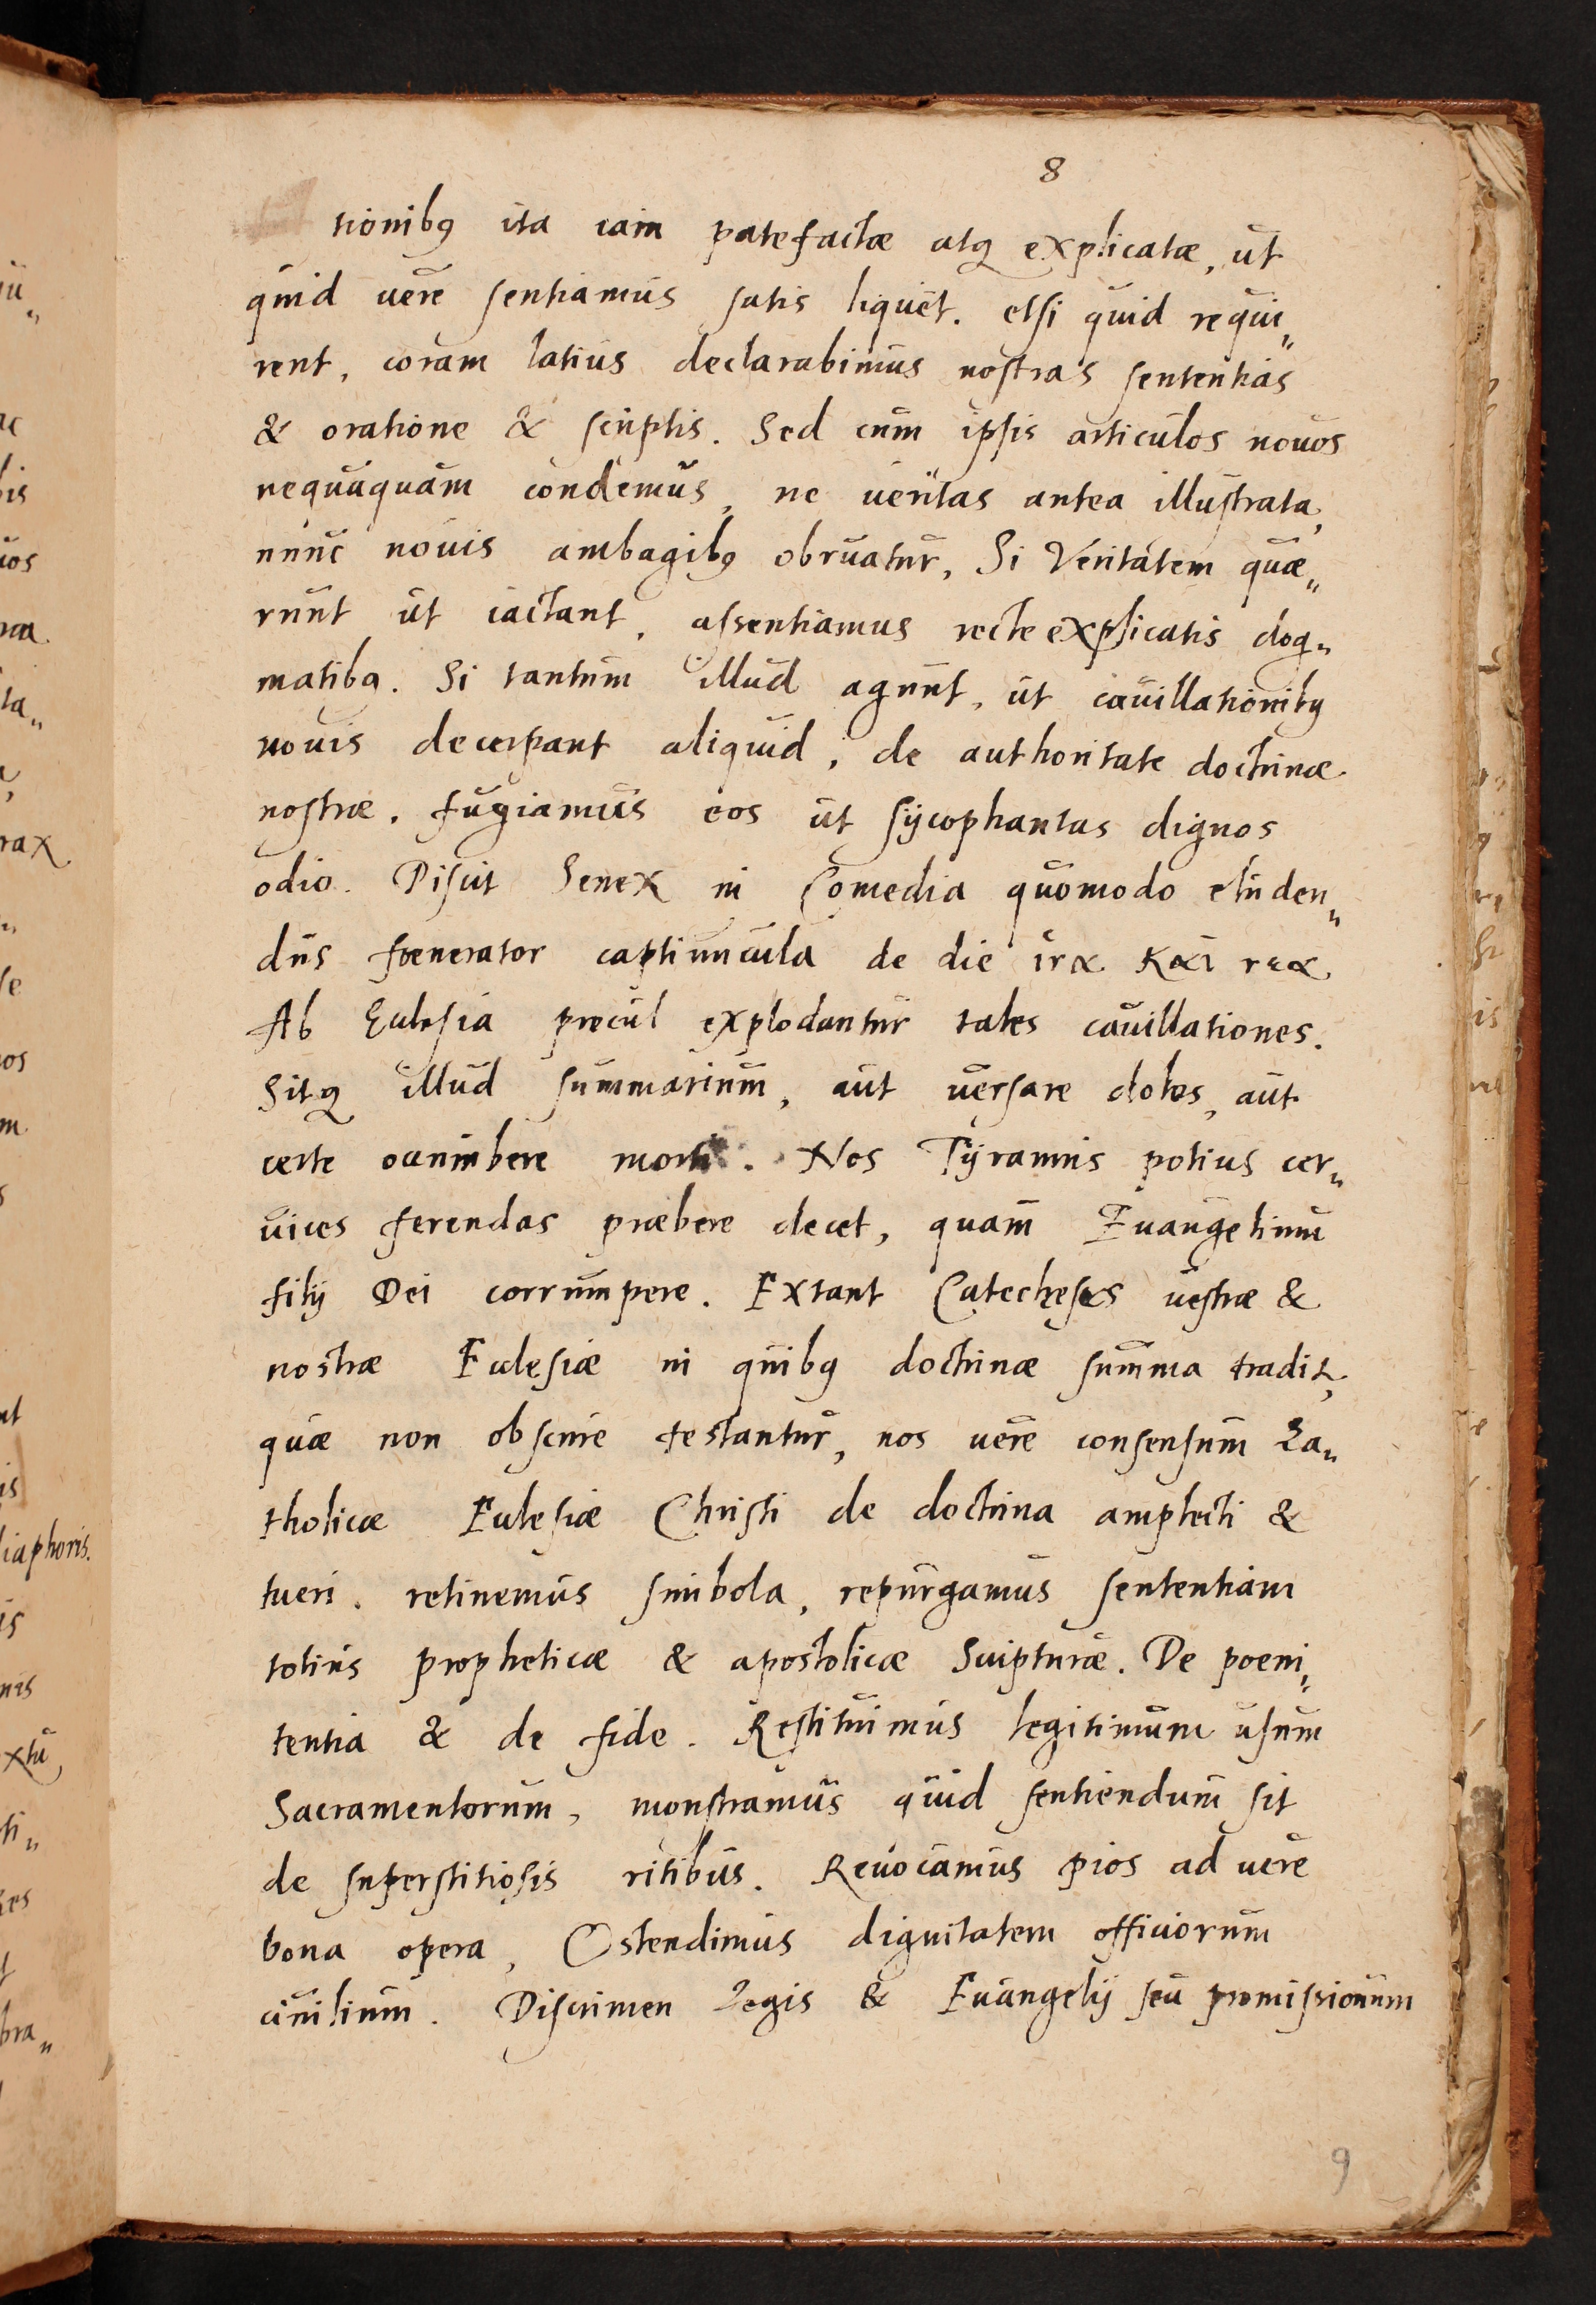 8
tionibꝰ ita iam patefactæ atqꝫ explicatæ, ut
quid uere sentiamus satis liquet. etsi quid requi„
rent, coram latius declarabimus nostras sententias
& oratione & scriptis. Sed cum ipsis articulos nouos
nequaquam condemus, ne ueritas antea illustrata,
nunc nouis ambagibꝰ obruatur, Si Veritatem quæ„
runt ut iactant, assentiamus recte explicatis dog„
matibꝰ. Si tantum illud agunt, ut cauillationibꝰ
nouis decerpant aliquid, de authoritate doctrinæ
nostræ. fugiamus eos ut sycophantas dignos
odio. Discit Senex in Comedia quomodo eluden„
dus foenerator captiuncula de die
Ab Eclesia procul explodantur tales cauillationes.
Sitqꝫ illud summarium, aut uersare dolos, aut
certe occumbere morti. Nos Tyrannis potius cer„
uices ferendas præbere decet, quam Euangelium
filij Dei corrumpere. Extant Catecheses uestræ &
nostræ Eclesiæ in quibꝰ doctrinæ summa tradit,
quæ non obscure testantur, nos uere consensum Ca„
tholicæ Eclesiæ Christi de doctrina amplecti &
tueri. retinemus simbola, repurgamus sententiam
totius propheticæ & apostolicæ Scripturæ. De poeni„
tentia & de fide. Restituimus legitimum usum
Sacramentorum, monstramus quid sentiendum sit
de superstitiosis ritibus. Reuocamus pios ad uere
bona opera, Ostendimus dignitatem officiorum
ciuilium. Discrimen Legis & Euangelij seu promissionum
9